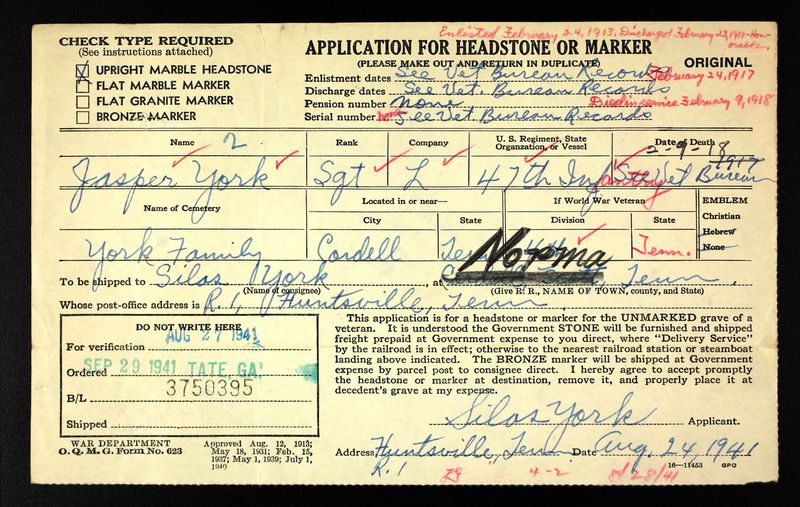 CHECK TYPE REQUIRED
(See instructions attached)
X UPRIGHT MARBLE HEADSTONE
FLAT MARBLE MARKER
FLAT GRANITE MARKER
BRONZE MARKER
Enlisted February 24, 1913. Discharged February 23, 1917-Honorable.
APPLICATION FOR HEADSTONE OR MARKER
(PLEASE MAKE OUT AND RETURN IN DUPLICATE)
ORIGINAL
Enlistment dates See Vet Bureau Records February 24, 1917
Discharge dates See Vet. Bureau Records
Pension number None Died in service February 9, 1918
Serial number See Vet. Bureau Records
Name 2
Rank
Company
U. S. Regiment, State Organization, or Vessel
Date of Death
2-9-18
1917
Jasper York Sgt L 47th Infantry See Vet Bureau
Name of Cemetery
Located in or near—
City
State
If World War Veteran
Division
State
EMBLEM
Christian
Hebrew
None
York Family Cordell Tenn 4th Tenn.
To be shipped to Silas York, at Norma, Tenn.
(Name of consignee)
(Give R. R., NAME OF TOWN, county, and State)
Whose post-office address is R. 1, Huntsville, Tenn
DO NOT WRITE HERE
For verification AUG 27 1941
Ordered SEP 29 1941 TATE, GA.
B/L 3750395
Shipped
This application is for a headstone or marker for the UNMARKED grave of a
veteran. It is understood the Government STONE will be furnished and shipped
freight prepaid at Government expense to you direct, where "Delivery Service"
by the railroad is in effect; otherwise to the nearest railroad station or steamboat
landing above indicated. The BRONZE marker will be shipped at Government
expense by parcel post to consignee direct. I hereby agree to accept promptly
the headstone or marker at destination, remove it, and properly place it at
decedent's grave at my expense.
Silas York Applicant.
WAR DEPARTMENT
O. Q. M. G. Form No. 623
Approved Aug. 12, 1913;
May 18, 1931; Feb. 15,
1937; May 1, 1939; July 1,
1940
Address Huntsville, Tenn Date Aug. 24, 1941
R. 1
4-2
8/28/41
16—11453 GPO